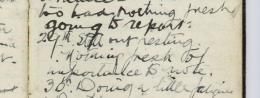 too bad, nothing fresh
going to report.
29th Still out resting
nothing fresh of
importance to note.
30th Doing a little fatigue